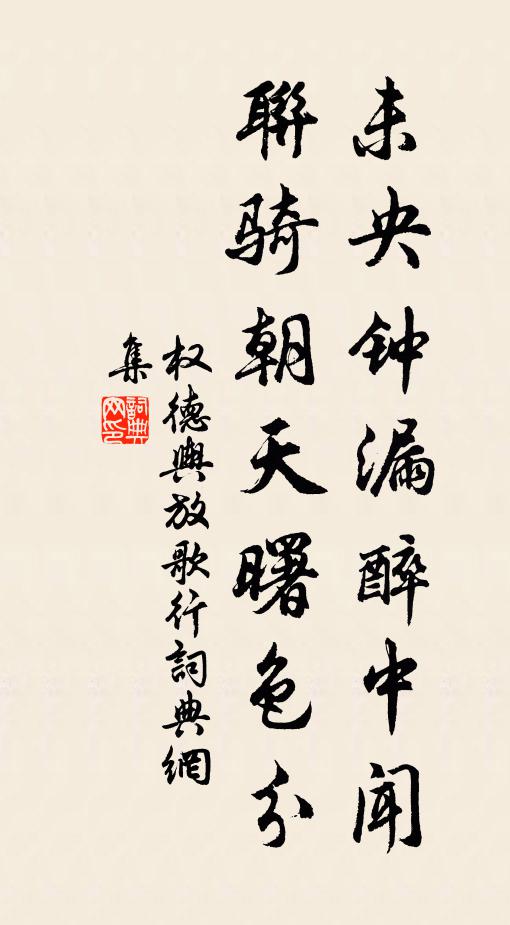 未央钟漏醉中闻
聯骑朝天曙色分
权德輿放歌行詞典網
集
詞典
网印